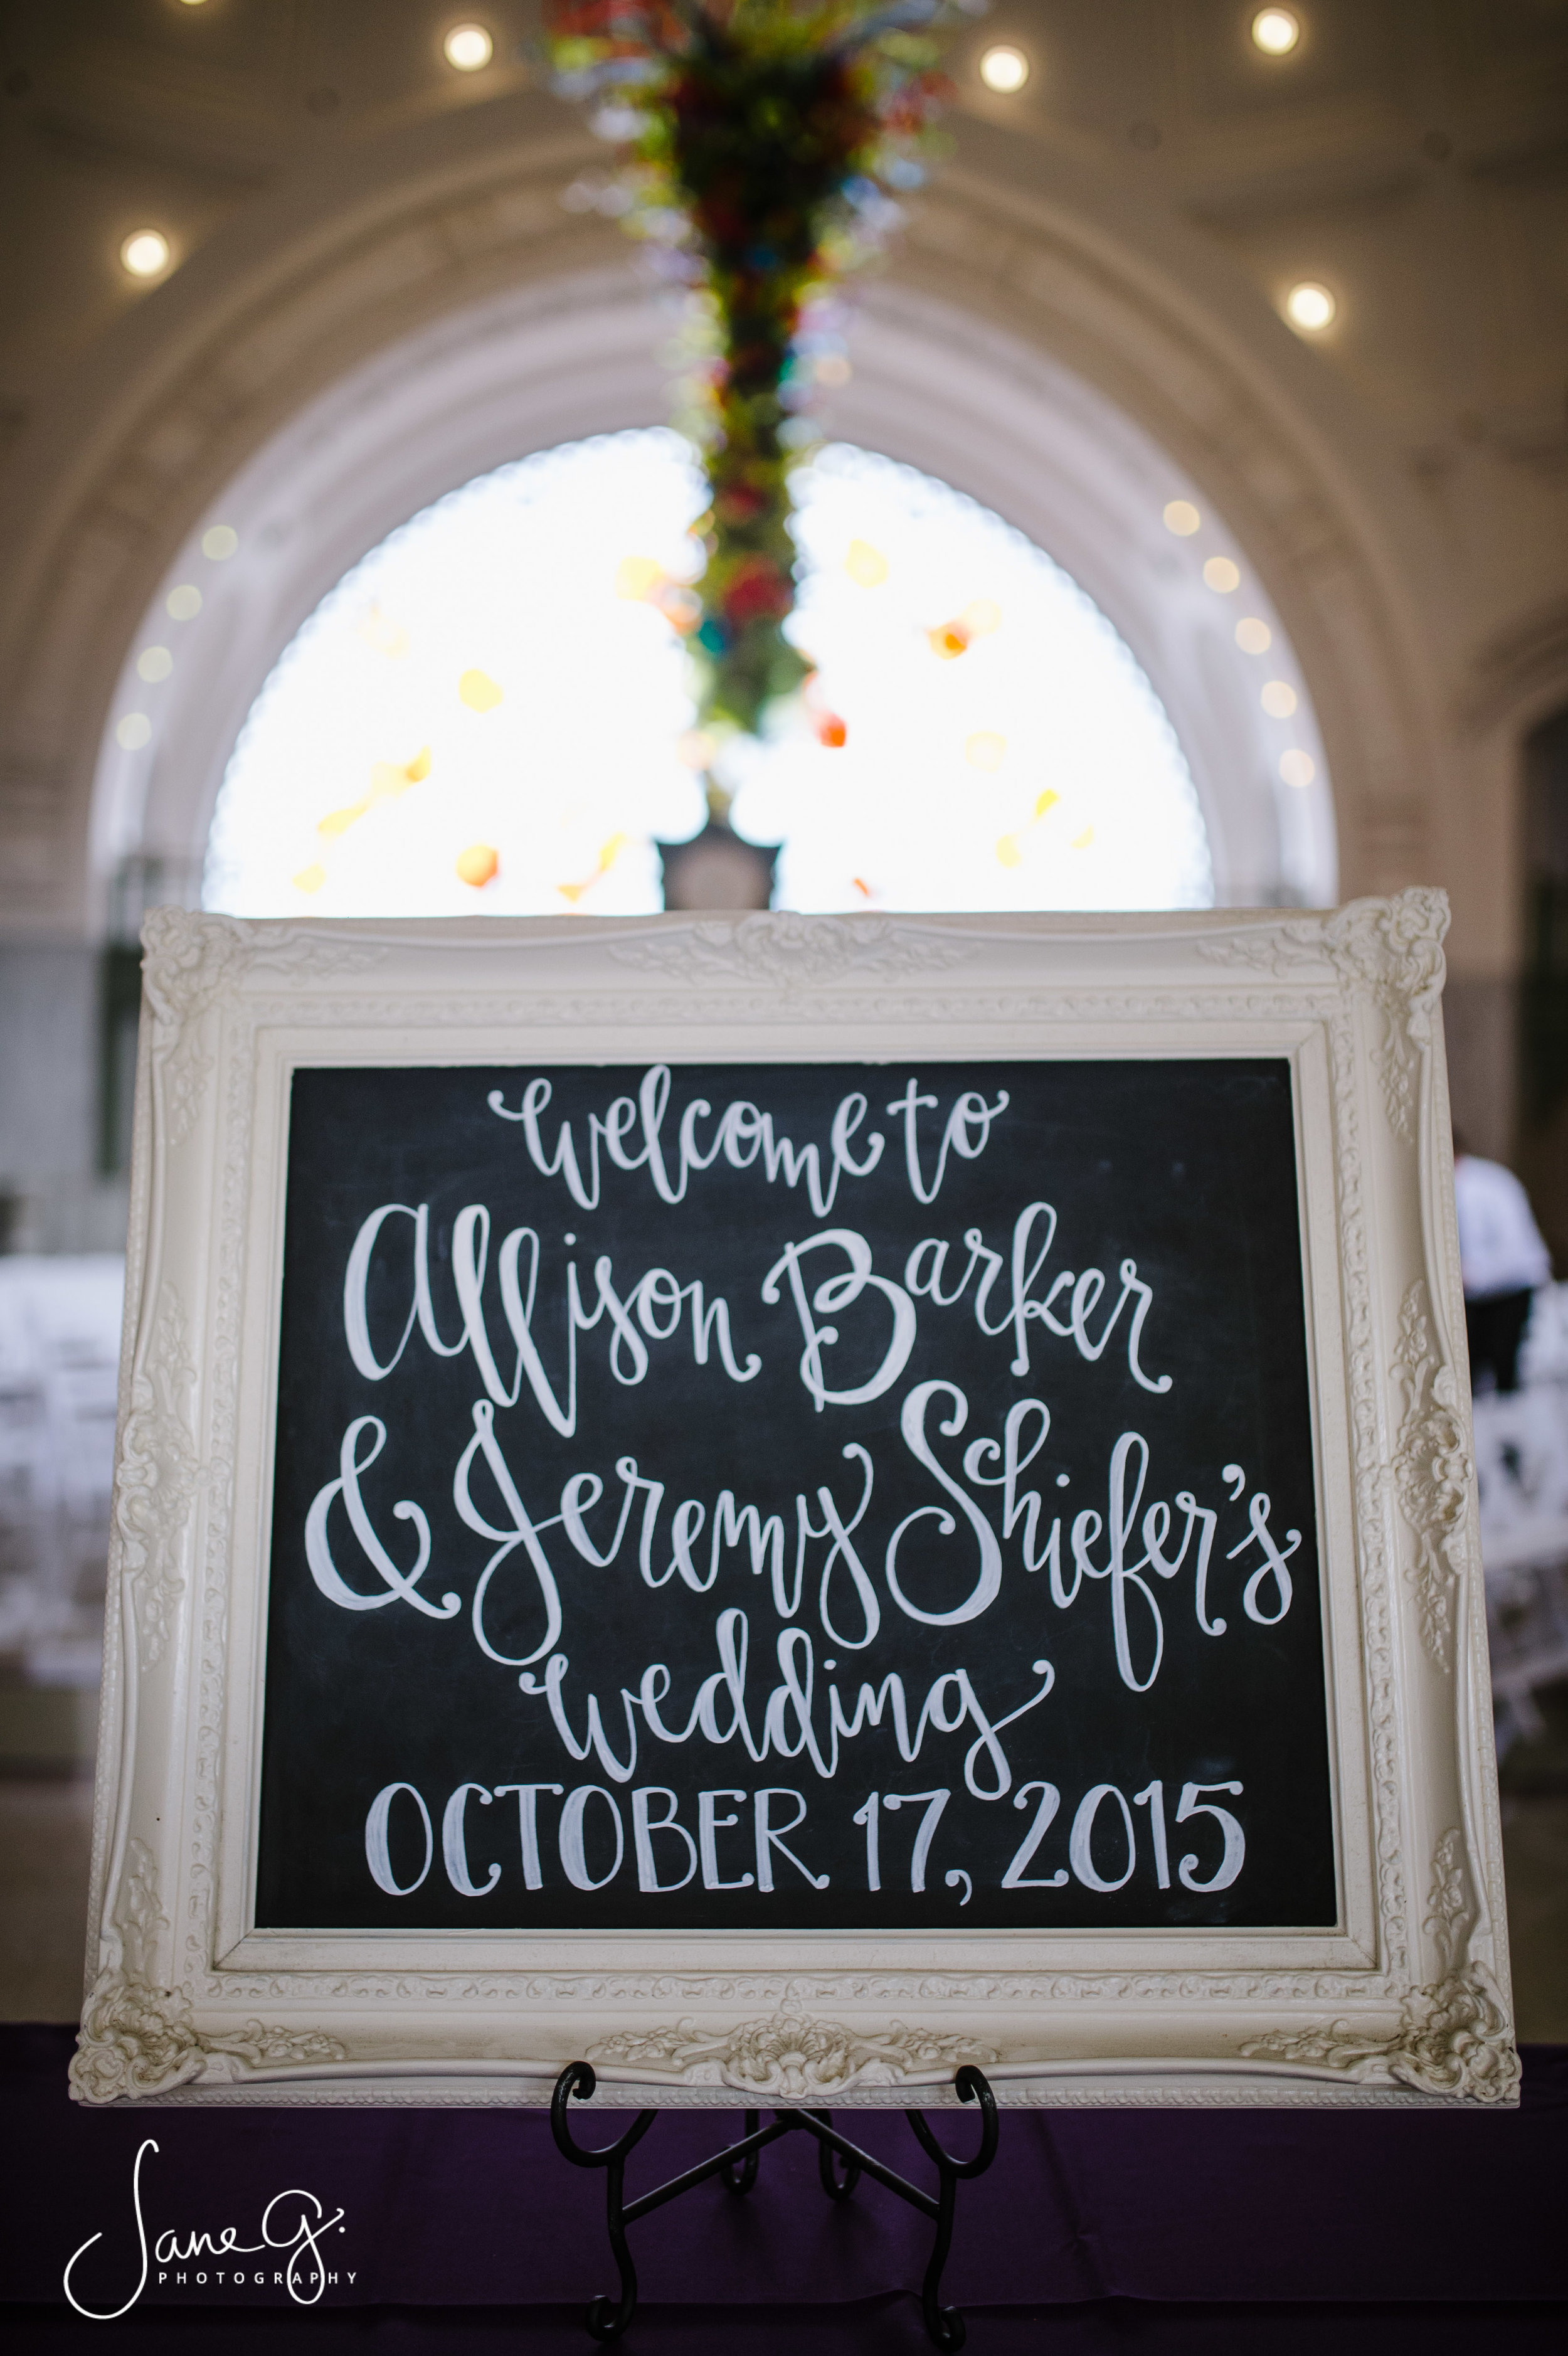 welcome to
Allison Barker
& Jeremy Shiefer's
wedding
OCTOBER 17, 2015
Jane G.
PHOTOGRAPHY